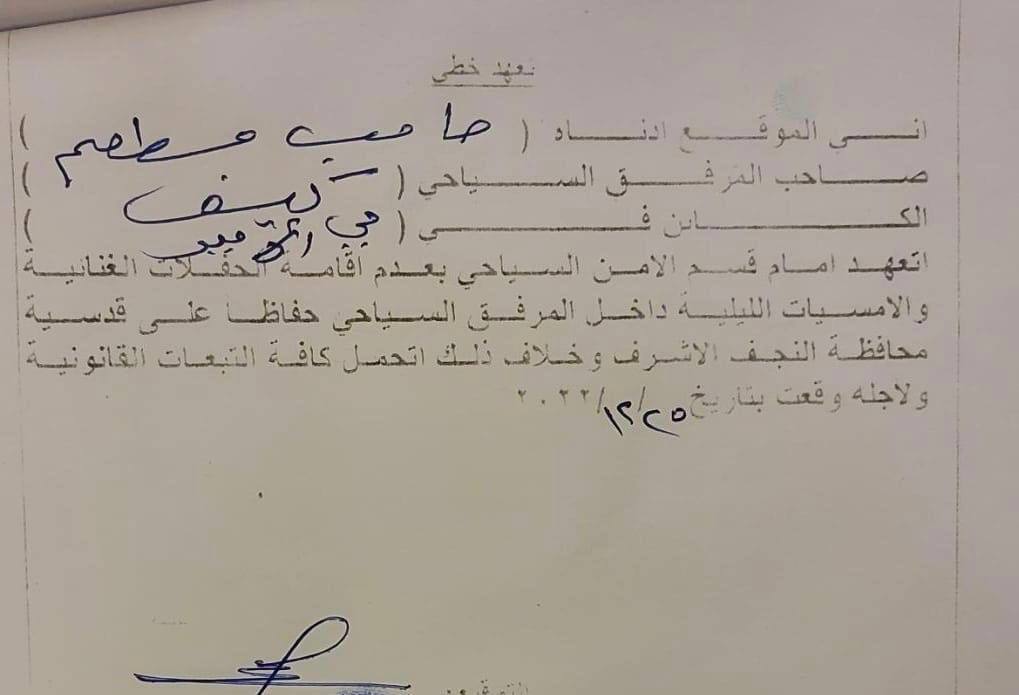 تعهد خطي
اني الموقع ادناه ( صاحب مطعم )
صاحب المرفق السياحي ( كيف )
الكائن في ( حي الامير )
اتعهد امام قسم الامن السياحي بعدم اقامة الحفلات الغنائية
والامسيات الليلية داخل المرفق السياحي حفاظا على قدسية
محافظة النجف الاشرف وخلاف ذلك اتحمل كافة التبعات القانونية
ولاجله وقعت بتاريخ ٢٥/١٢/٢٠٢٢